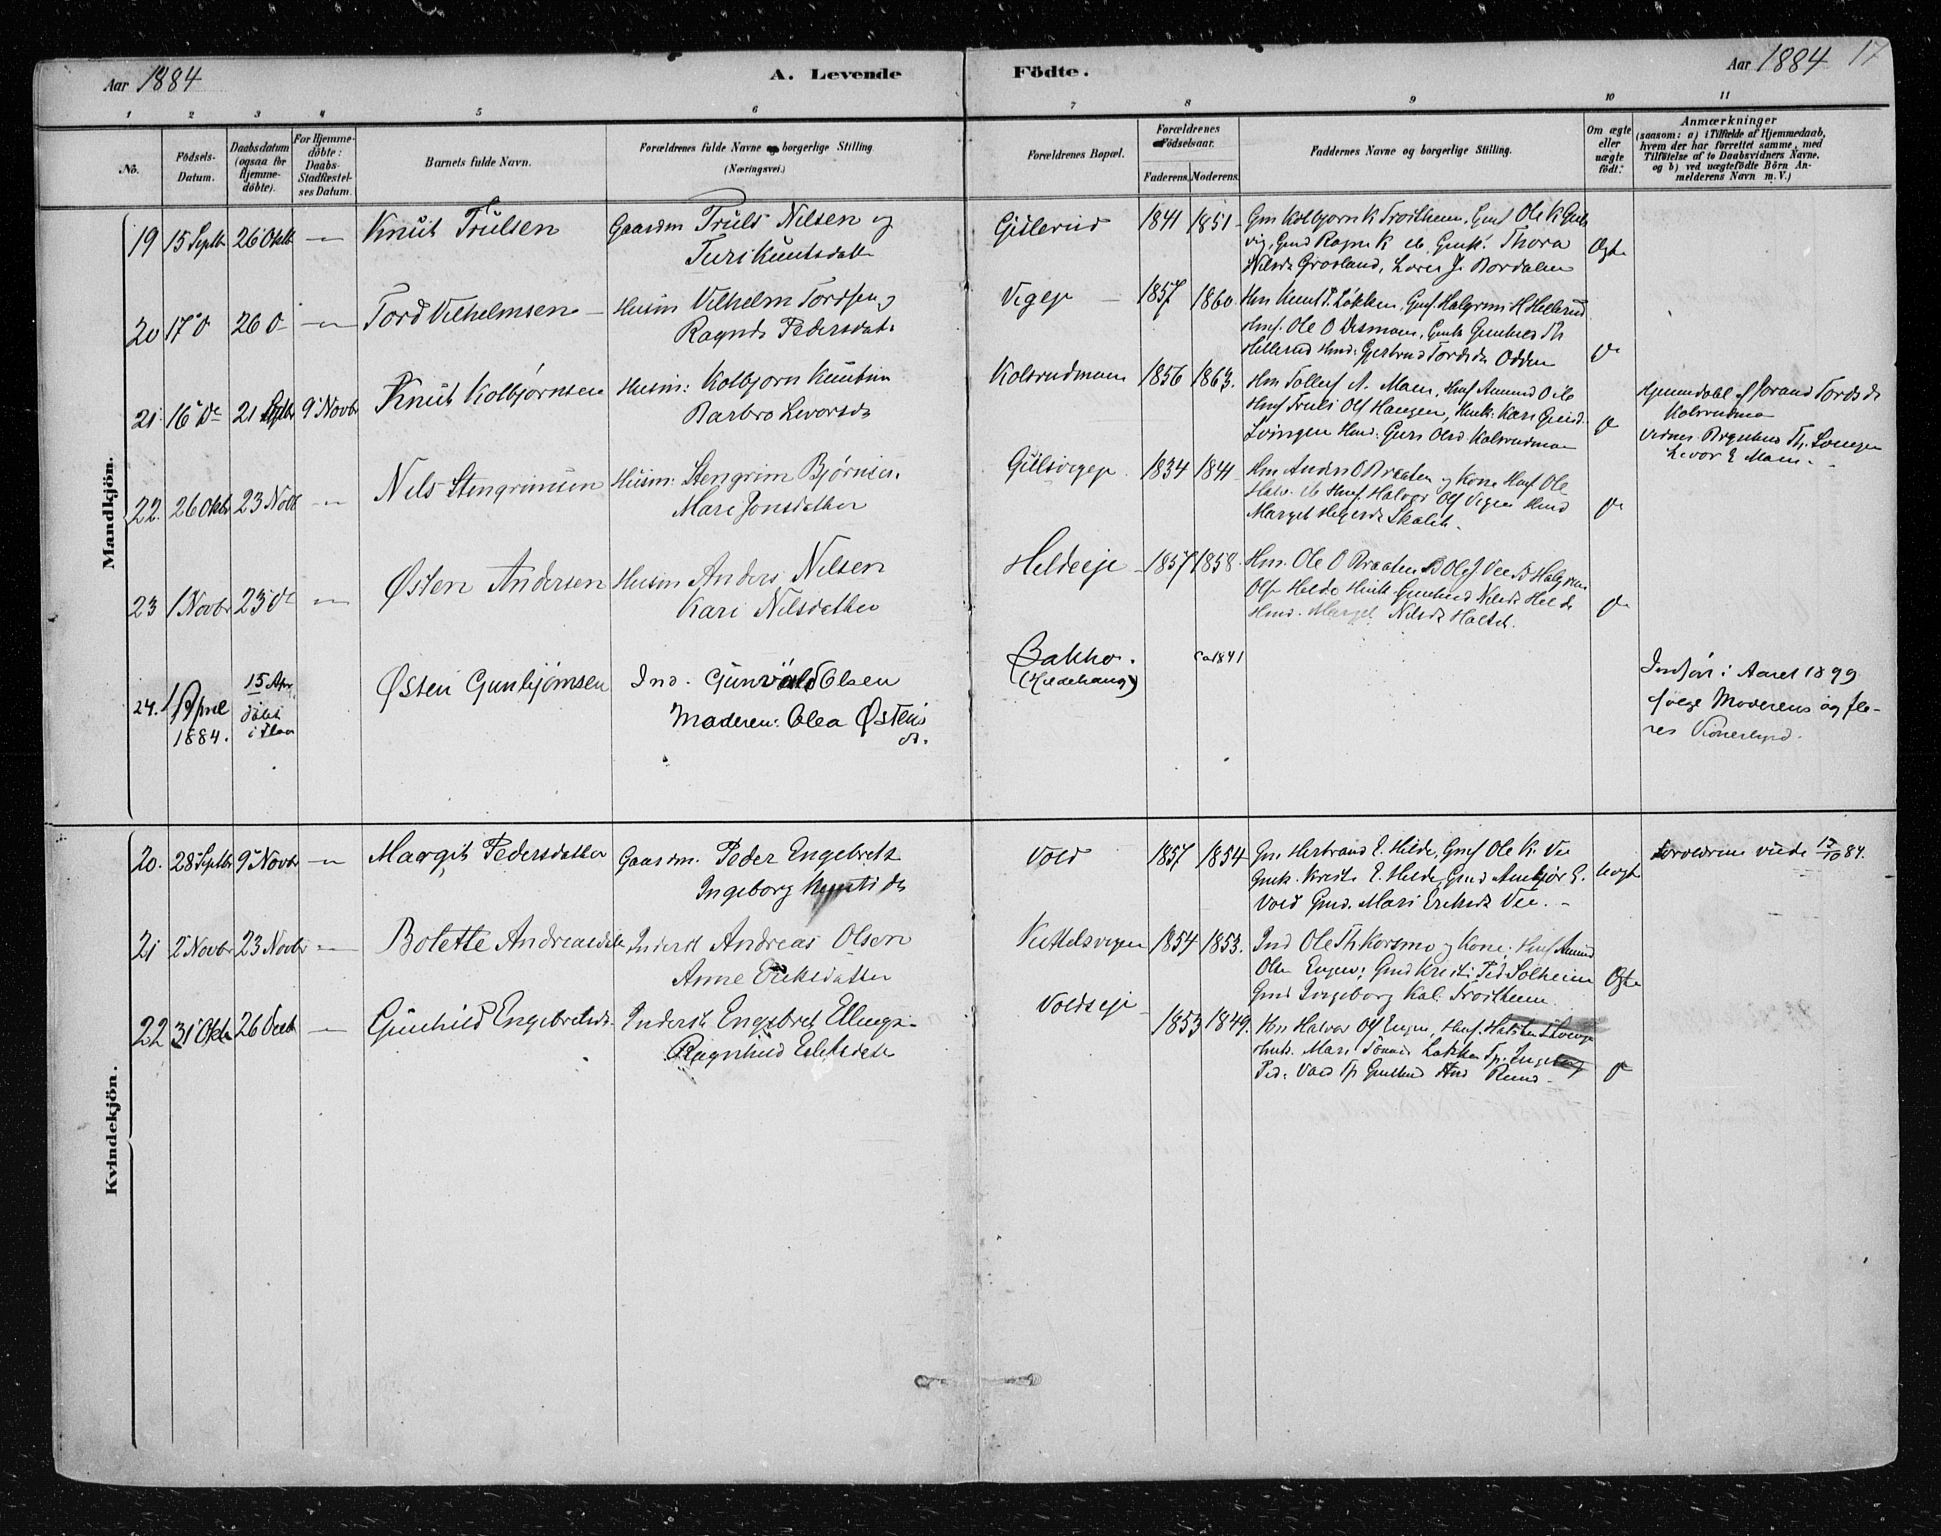 Aar 1884
A. Levende
Fødte.
Aar 1884 17
1 2 3 4 5 6 7 8 9 10 11
No.
Fødsels-
Datum.
Daabsdatum
(ogsaa for
Hjemme-
døbte).
For Hjemme-
døbte:
Daabs-
Stadfæstel-
ses Datum.
Barnets fulde Navn.
Forældrenes fulde Navne og borgerlige Stilling
(Næringsvei.)
Forældrenes Bopæl.
Forældrenes
Fødselsaar.
Faderens. Moderens.
Faddernes Navne og borgerlige Stilling.
Om ægte
eller
uægte
født.
Anmærkninger
(saasom: a) i Tilfælde af Hjemmedaab,
hvem der har forrettet samme, med
Tilføielse af to Daabsvidners Navne.
og b) ved uægtefødte Børn An-
melderens Navn m. V.)
Mandkjön.
19 15 Septb 26 Oktb — Knut Trulsen
Gaardm Truls Nilsen og
Turi Knutsdatte
Gislerud 1841 1851
Gm Kolbjørn K Troilheim, Gmf Ole K Guls
vig, Gmd Ragne K do Gmk. Thora
Nilsd. Grosland, Lærer J. Bordalen
Ægte
20 17 d 26 d — Tord Vilhelmsen
Husm Vilhelm Tordsen og
Ragnd. Pedersdat.
Vigeje 1857 1860
Hm Knut P. Løkken, Gmf. Halgrim H Hellerud
Hmf. Ole O Dismoen, Gmk Gunhild Th
Hellerud Hmd: Gjertrud Tordsd. Odden
do
21 16 do 21 Septb 9 Novbr Knut Kolbjørnsen
Husm: Kolbjørn Knutsen
Barbro Levorsd.
Kolsrudmoen 1856 1863.
Hm Tollef A. Moen, Hmf Amund O ib
Hmf Truls Ols Haugen, Hmk: Kari Gund.
Svingen Hmd: Guri Olsd. Kolsrudmoen
do
Hjemmedøbt af Jorand Tordsd.
Kolsrudmoen
Vidner. Th.
Levor E Moen.
22. 26 Oktb 23 Novb — Nils Stengrimsen
Husm: Stengrim Bjørnsen.
Mari Jonsdatter
Gulsvigeje 1834 1841
Hm Anders O Braaten og Kone Hmf Ole
Halv. do Hmf. Halvor Ols Vigen Hmd
Margit Helgesd.
do
23 1 Novbr 23 do — Østen Andersen
Husm Anders Nilsen
Kari Nilsdatter
Heldeeje 1857 1858.
Hm. Ole O Braaten Ole J Vee Halgrim
Ols Helde Hmk. Gunhild Nilsd. Helde
Hmd. Margit Nilsd.
do
24. 1 April
1884.
15 Apr
døbt
i Flaa
Østen Gunbjørnsen
Ind. Gunvald Olsen
Moderen: Olea Østens
d.
Bakko.
(Hildehaug)
ca 1841
Indført i Aaret 1899
ifølge Moderens og fle-
res Vidnesbyrd.
Kvindekjön.
20. 28 Septb 9 Novbr — Margit Pedersdatter
Gaardm. Peder Engebrets
Ingeborg Knutsd.
Vold 1857 1854
Gm Hertrand E. Hilde, Gmf Ole K. Vee
Gmk. Kristi E. Hilde, Gmd Anbjør E.
Vold Gmd. Mari Eriksd. Vee.
uægt
Forældrene viede 13/10 84.
21 2 Novbr 23 Novbr — Bolette Andreasdatt
Inderst Andreas Olsen
Anne Eriksdatter
Kittelsvigen 1854 1853.
Ind Ole Th Korsmo og Kone; Hmf Amund
Olsen Engen; Gmd Kristi Ped Solheim
Gmd Ingeborg Kol. Troilheim.
Ægte
22 31 Oktb 26 Decb — Gunhild Engebretsd.
Inderst Engebret Ellings.
Ragnhild Eriksdatt
Voldseje 1853 1849.
Hm Halvor Ols Engen, Hmf.
Hmk. Mari Løkken Tp. Ingeborg
Ped. Vold Tp Gunhild
do